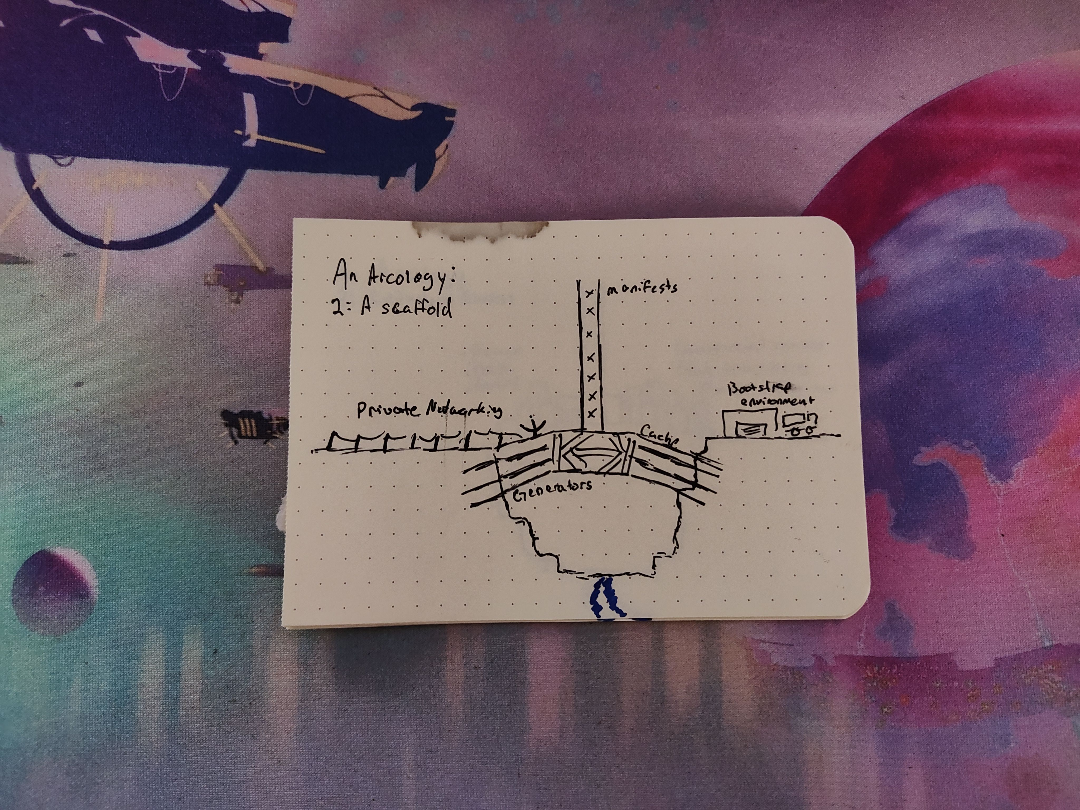 An Arcology:
2: A scaffold
manifests
Bootstrap
environment
Private Networking
Cache
Generators